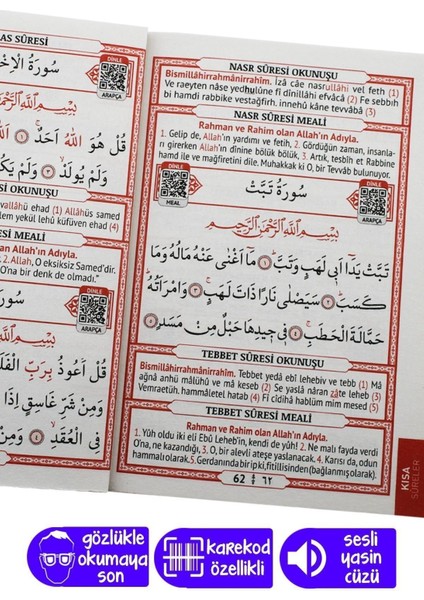 AS SÛRESİ
DİNLE
ARAPÇA
قُلْ هُوَ اللّٰهُ اَحَدٌ
SI OKUNUŞU
SI MEALİ
2. Allah, O eksiksiz Samed'dir,
O'na bir denk de olmadı."
DİNLE
ARAPÇA
قُلْ اَعُوذُ بِرَبِّ الْفَلَقِ
وَمِنْ شَرِّ غَاسِقٍ اِذَا
فِي الْعُقَدِ وَمِنْ
NASR SÛRESİ OKUNUŞU
Bismillâhirrahmânirrahîm. İzâ câe nasrullâhi vel feth (1)
Ve raeyten nâse yedhulûne fî dînillâhi efvâcâ (2) Fe sebbıh
bi hamdi rabbike vestağfirh. innehû kâne tevvâbâ (3)
NASR SÛRESİ MEALİ
Rahman ve Rahim olan Allah'ın Adıyla.
1. Gelip de, Allah'ın yardımı ve fetih, 2. Gördüğün zaman, insanla-
rı girerken Allah'ın dînine bölük bölük, 3. Artık, tesbîh et Rabbine
hamd ile ve mağfiretini dile. Muhakkak ki O, bir Tevvâb bulunuyor.
DİNLE
MEAL
سُورَةُ تَبَّتْ
DİNLE
ARAPÇA
بِسْمِ اللّٰهِ الرَّحْمٰنِ الرَّحِيمِ
تَبَّتْ يَدَٓا اَبِي لَهَبٍ وَتَبَّ ﴿١﴾ مَٓا اَغْنٰى عَنْهُ مَالُهُ وَمَا
كَسَبَ ﴿٢﴾ سَيَصْلٰى نَارًا ذَاتَ لَهَبٍ ﴿٣﴾ وَامْرَاَتُهُ
حَمَّالَةَ الْحَطَبِ ﴿٤﴾ فِي جِيدِهَا حَبْلٌ مِنْ مَسَدٍ ﴿٥﴾
TEBBET SÛRESİ OKUNUŞU
Bismillâhirrahmânirrahîm. Tebbet yedâ ebî lehebiv ve tebb (1) Mâ
ağnâ anhü mâlühû ve mâ keseb (2) Se yaslâ nâran zâte leheb (3)
Vemraetüh, hammâletel hatab (4) Fî cîdihâ hablüm mim mesed (5)
TEBBET SÛRESİ MEALİ
Rahman ve Rahim olan Allah'ın Adıyla.
1. Yüh oldu iki eli Ebû Leheb'in, kendi de yûh! 2. Ne malı fayda verdi
O'na, ne kazandığı, 3. O, bir alevli ateşe yaslanacak. 4. Karısı da, odun
hammalı olarak. 5. Gerdanında bir ip ki, fitilisinden (bağlanmış olarak).
62 ٦٢
KISA
SÛRELER
gözlükle
okumaya
son
karekod
özellikli
sesli
yasin
cüzü